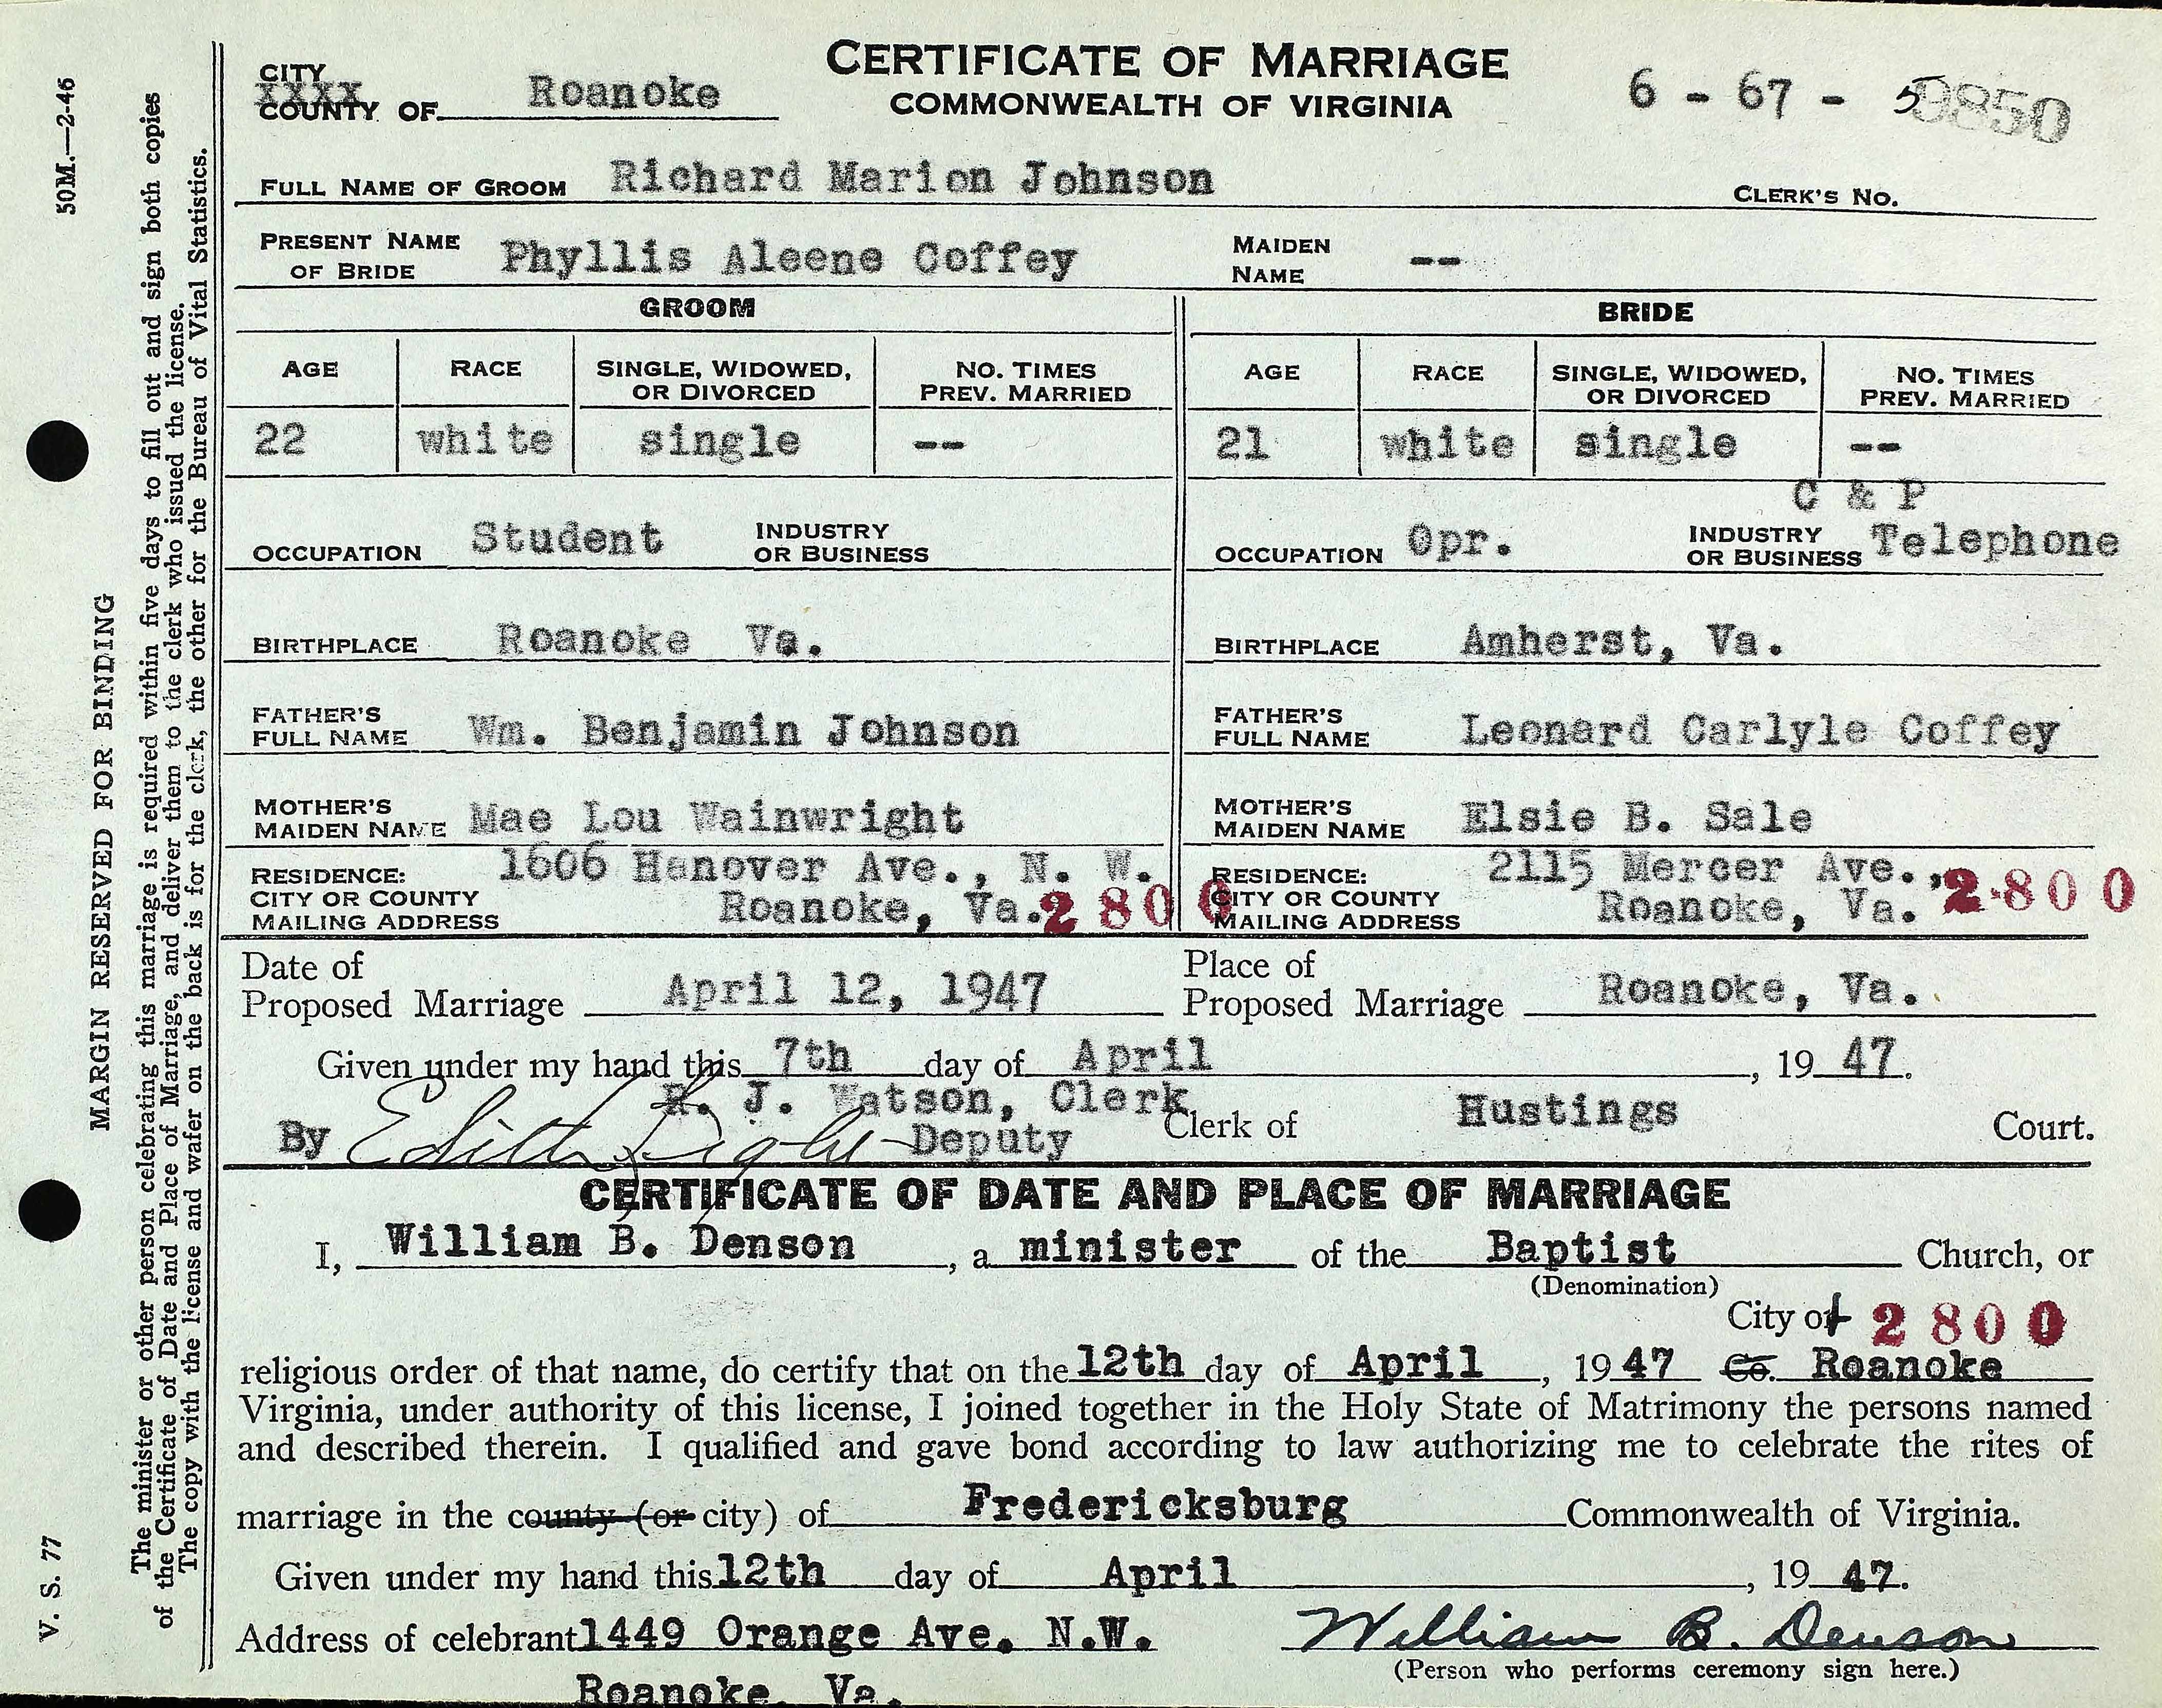 CERTIFICATE OF MARRIAGE
COMMONWEALTH OF VIRGINIA
CITY
XXXX
COUNTY OF Roanoke
6 - 67 - 9850
FULL NAME OF GROOM Richard Marion Johnson
CLERK'S NO.
PRESENT NAME OF BRIDE Phyllis Aleene Coffey MAIDEN NAME --
GROOM
AGE RACE SINGLE, WIDOWED, OR DIVORCED NO. TIMES PREV. MARRIED
22 white single --
OCCUPATION Student INDUSTRY OR BUSINESS
BIRTHPLACE Roanoke Va.
FATHER'S FULL NAME Wm. Benjamin Johnson
MOTHER'S MAIDEN NAME Mae Lou Wainwright
RESIDENCE: 1606 Hanover Ave., N. W.
CITY OR COUNTY
MAILING ADDRESS Roanoke, Va. 2800
BRIDE
AGE RACE SINGLE, WIDOWED, OR DIVORCED NO. TIMES PREV. MARRIED
21 white single --
C & P
OCCUPATION Opr. INDUSTRY OR BUSINESS Telephone
BIRTHPLACE Amherst, Va.
FATHER'S FULL NAME Leonard Carlyle Coffey
MOTHER'S MAIDEN NAME Elsie B. Sale
RESIDENCE: 2115 Mercer Ave.,
CITY OR COUNTY
MAILING ADDRESS Roanoke, Va. 2800
Date of Proposed Marriage April 12, 1947 Place of Proposed Marriage Roanoke, Va.
Given under my hand this 7th day of April, 1947.
R. J. Watson, Clerk
By Edith Deputy Clerk of Hustings Court.
CERTIFICATE OF DATE AND PLACE OF MARRIAGE
I, William B. Denson, a minister of the Baptist Church, or
(Denomination)
City of 2800
religious order of that name, do certify that on the 12th day of April, 1947 Co. Roanoke
Virginia, under authority of this license, I joined together in the Holy State of Matrimony the persons named
and described therein. I qualified and gave bond according to law authorizing me to celebrate the rites of
marriage in the county (or city) of Fredericksburg Commonwealth of Virginia.
Given under my hand this 12th day of April, 1947.
Address of celebrant 1449 Orange Ave. N.W. William B. Denson
(Person who performs ceremony sign here.)
Roanoke, Va.
50M.—2-46
MARGIN RESERVED FOR BINDING
V. S. 77
The minister or other person celebrating this marriage is required within five days to fill out and sign both copies
of the Certificate of Date and Place of Marriage, and deliver them to the clerk who issued the license.
The copy with the license and wafer on the back is for the clerk, the other for the Bureau of Vital Statistics.